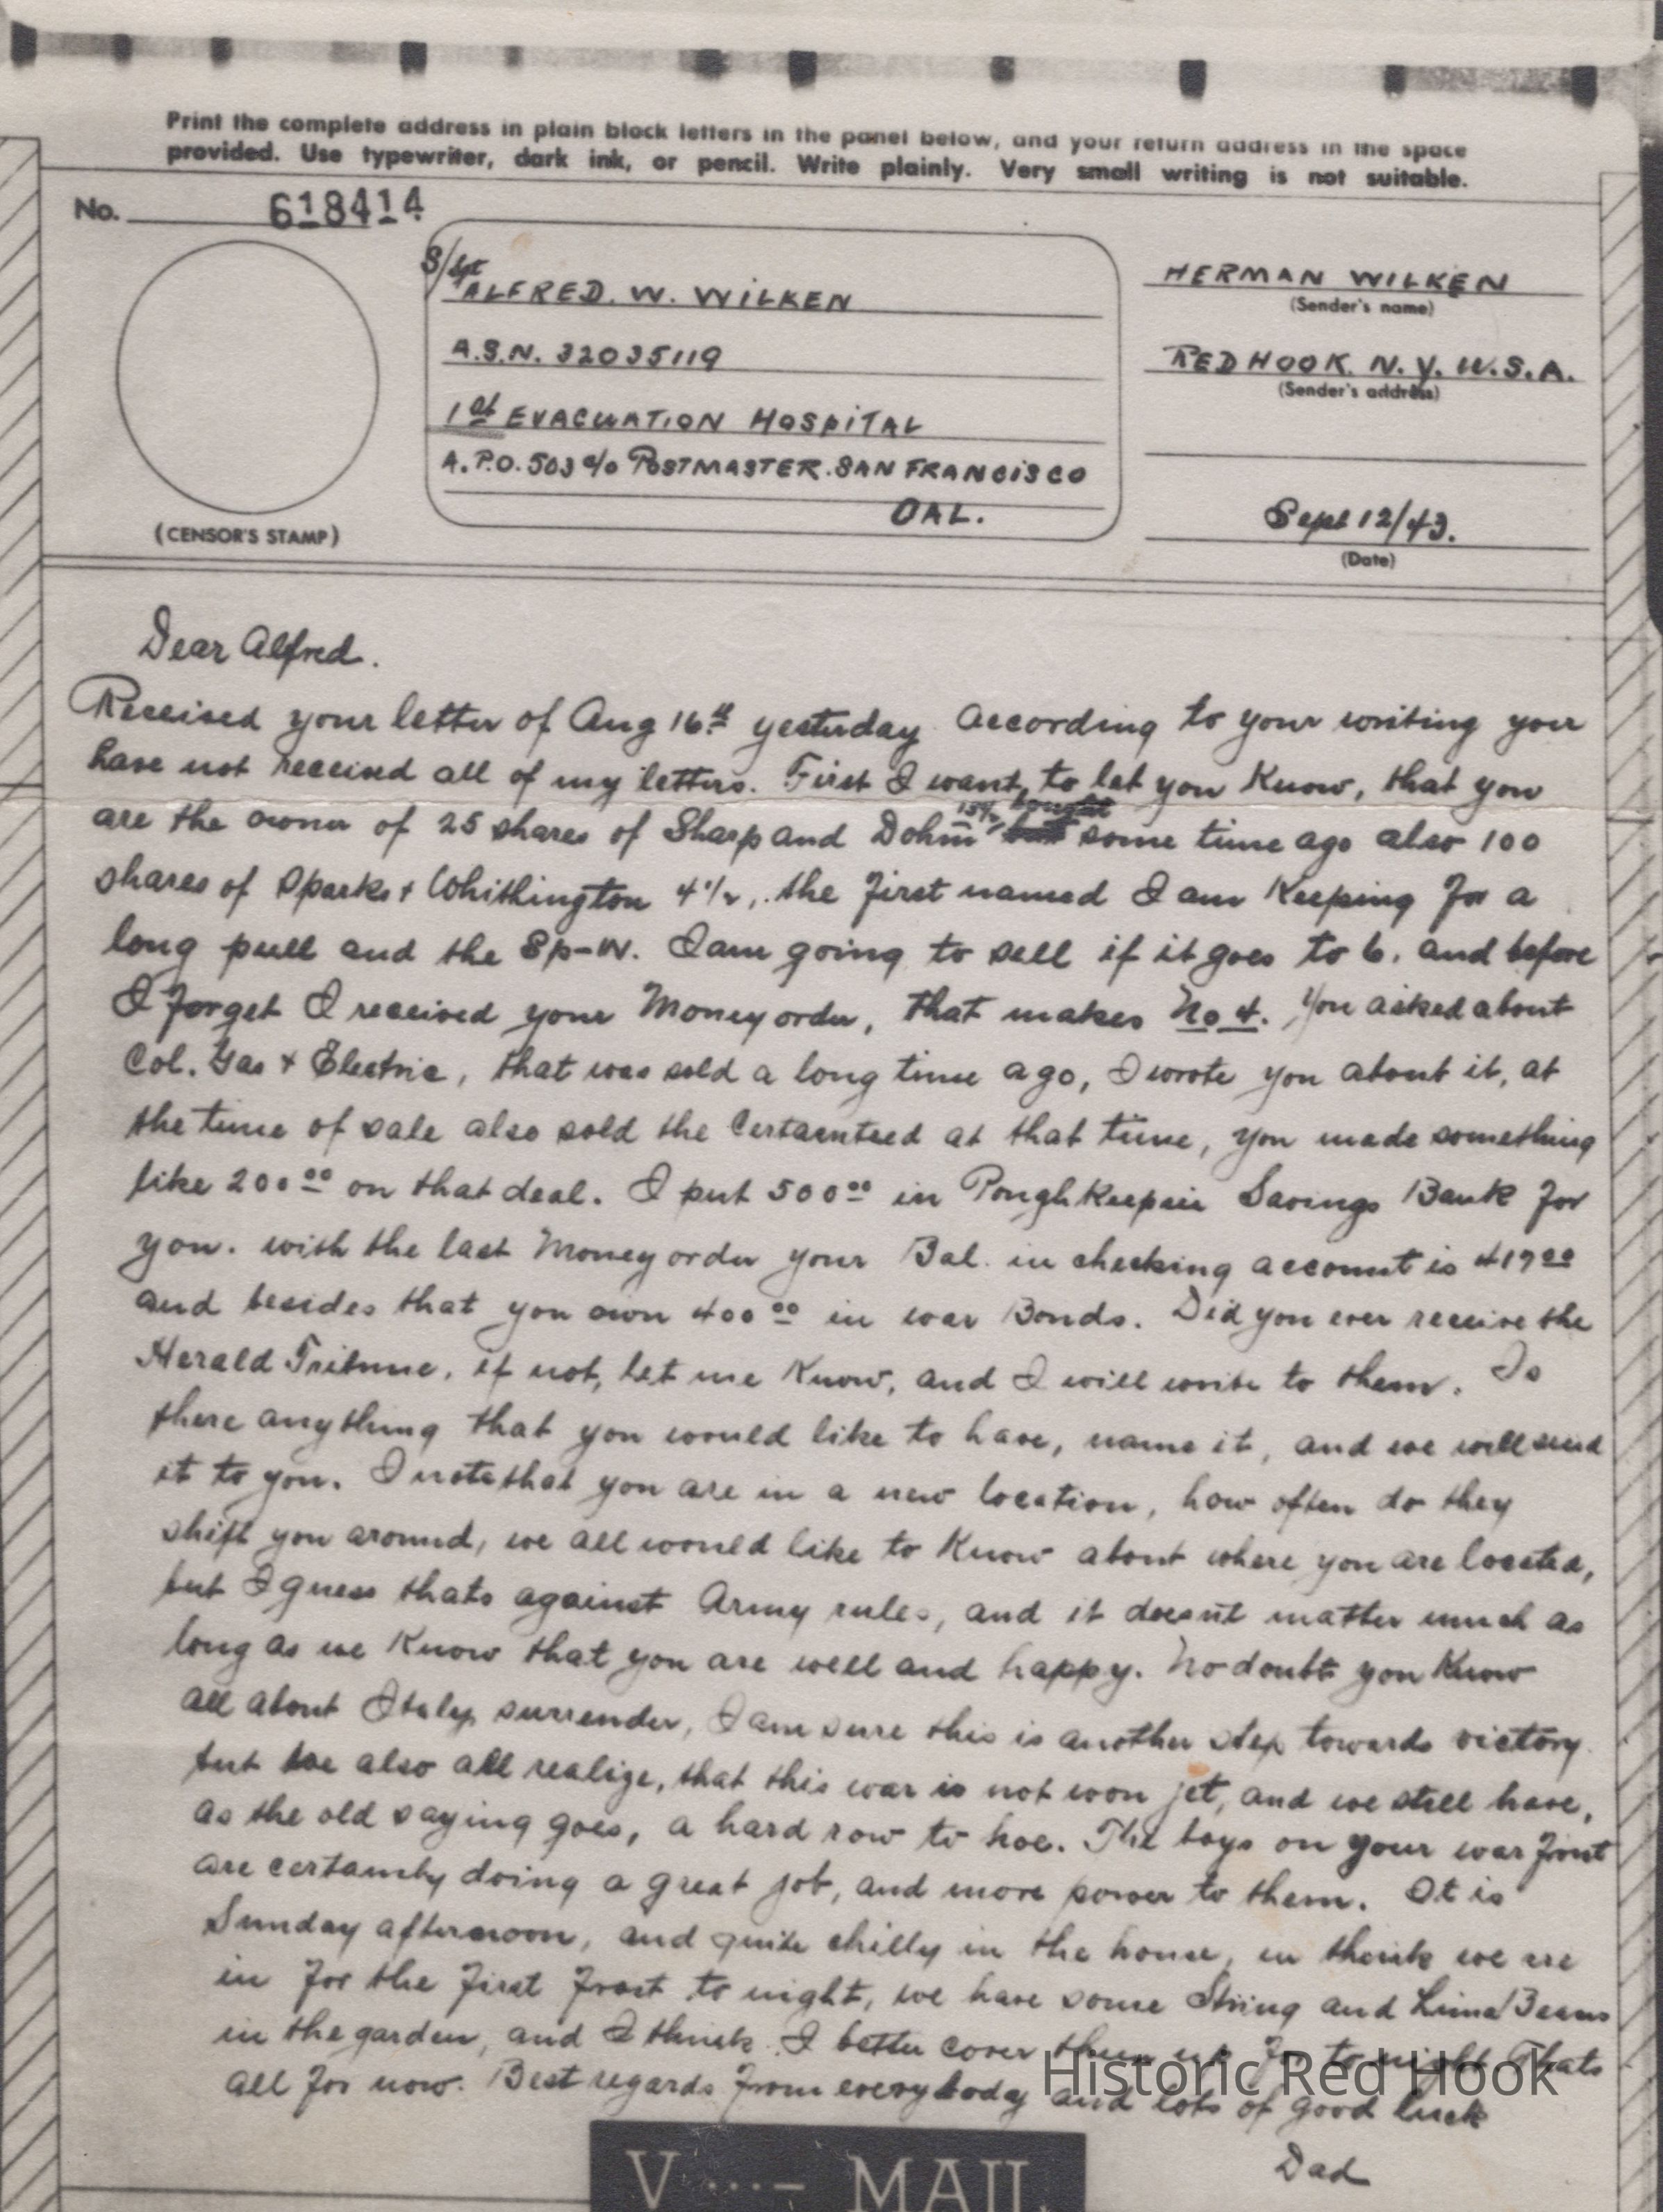 Print the complete address in plain block letters in the panel below, and your return address in the space
provided. Use typewriter, dark ink, or pencil. Write plainly. Very small writing is not suitable.
No. 618414
S/Sgt ALFRED. W. WILKEN
A.S.N. 32035119
1st EVACUATION HOSPITAL
A.P.O. 503 c/o POSTMASTER. SAN FRANCISCO
CAL.
(CENSOR'S STAMP)
HERMAN WILKEN
(Sender's name)
RED HOOK. N. Y. U.S.A.
(Sender's address)
Sept 12/43.
(Date)
Dear Alfred.
Received your letter of Aug 16th yesterday. According to your writing you
have not received all of my letters. First I want, to let you Know, that you
are the owner of 25 shares of Sharp and Dohm 13 1/2 bought some time ago also 100
shares of Sparks + Whithington 4 1/2, the first named I am Keeping for a
long pull and the Sp-W. I am going to sell if it goes to 6, and before
I forget I received your Money order, that makes No 4. You asked about
Col. Gas + Electric, that was sold a long time ago, I wrote you about it, at
the time of sale also sold the Certaenteed at that time, you made something
like 200 00 on that deal. I put 500 00 in Poughkeepsie Savings Bank for
you. with the last Money order your Bal. in checking account is 419 00
and besides that you own 400 00 in war Bonds. Did you ever receive the
Herald Tribune, if not, let me Know, and I will write to them. Is
there anything that you would like to have, name it, and we will send
it to you. I note that you are in a new location, how often do they
shift you around, we all would like to Know about where you are located,
but I guess thats against Army rules, and it doesnt matter much as
long as we Know that you are well and happy. No doubt you Know
all about Italy surrender, I am sure this is another step towards victory
but we also all realize, that this war is not won jet, and we still have,
as the old saying goes, a hard row to hoe. The boys on your war front
are certainly doing a great job, and more power to them. It is
Sunday afternoon, and quite chilly in the house, think we are
in for the first frost to night, we have some String and Lima Beans
in the garden, and I think I better cover them up for to night. Thats
all for now. Best regards from everybody and lots of good luck
Dad
Historic Red Hook
V ...- MAIL